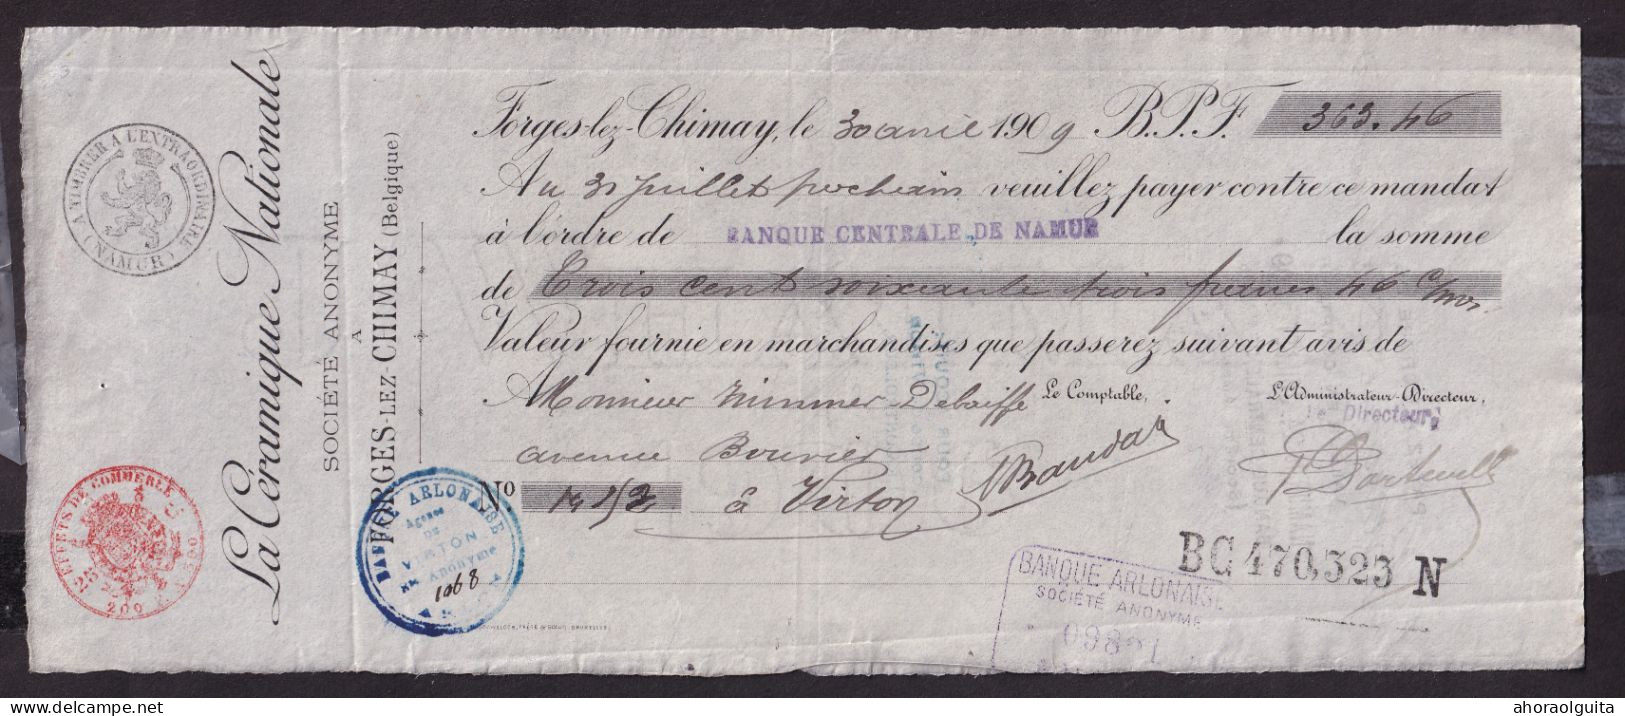 La Céramique Nationale
SOCIÉTÉ ANONYME
A
FORGES-LEZ-CHIMAY (Belgique)
A TIMBRER A L'EXTRAORDINAIRE
(NAMUR)
EFFETS DE COMMERCE
200
Forges-lez-Chimay, le 30 avril 1909 B.P.F. 363.46
Au 31 juillet prochain veuillez payer contre ce mandat
à l'ordre de BANQUE CENTRALE DE NAMUR la somme
de Trois cent soixante trois francs 46 c/mes
Valeur fournie en marchandises que passerez suivant avis de
A Monsieur Zimmer-Delaiffe Le Comptable, L'Administrateur-Directeur,
Le Directeur,
avenue Bouvier
No à Virton
BANQUE ARLONAISE
Agence
DE
VIRTON
Anonyme
1068
BC 470,323 N
BANQUE ARLONAISE
SOCIÉTÉ ANONYME
www.delcampe.net
ahoraolguita